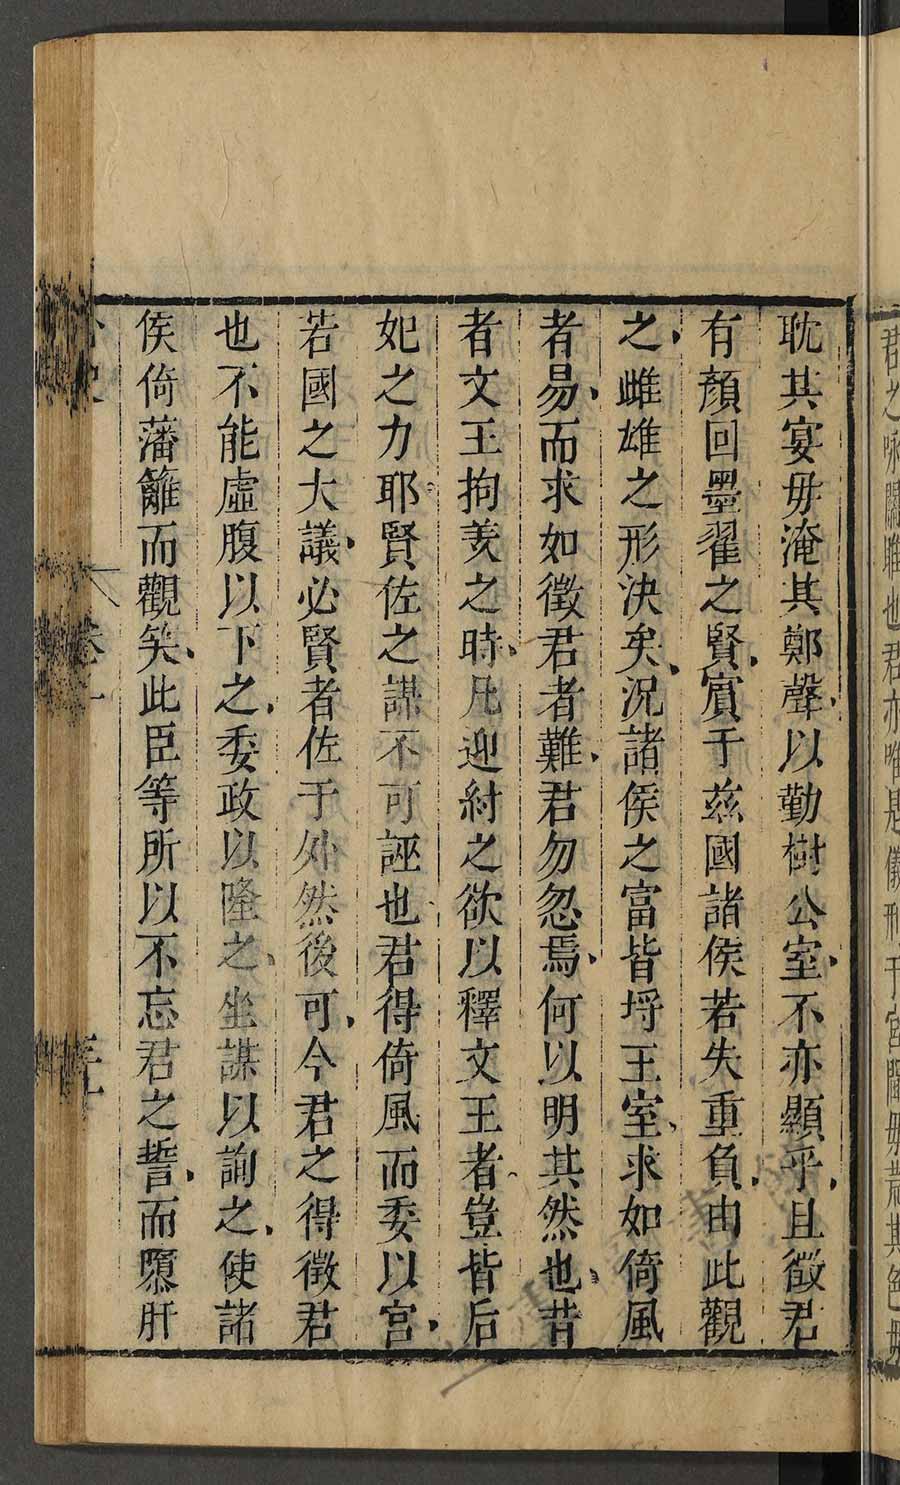 君之咏關雎也君亦唯是儀刑于宮闈毋荒其色毋
耽其宴毋淹其鄭聲以勤樹公室不亦顯乎且徵君
有顏回墨翟之賢賔于兹國諸侯若失重負由此觀
之雌雄之形決矣況諸侯之富皆埒王室求如倚風
者易而求如徵君者難君勿忽焉何以明其然也昔
者文王拘羑之時凡迎紂之欲以釋文王者豈皆后
妃之力耶賢佐之謀不可誣也君得倚風而委以宮
若國之大議必賢者佐于外然後可今君之得徵君
也不能虛腹以下之委政以隆之坐謀以詢之使諸
侯倚藩籬而觀笑此臣等所以不忘君之誓而隳肝
卷一